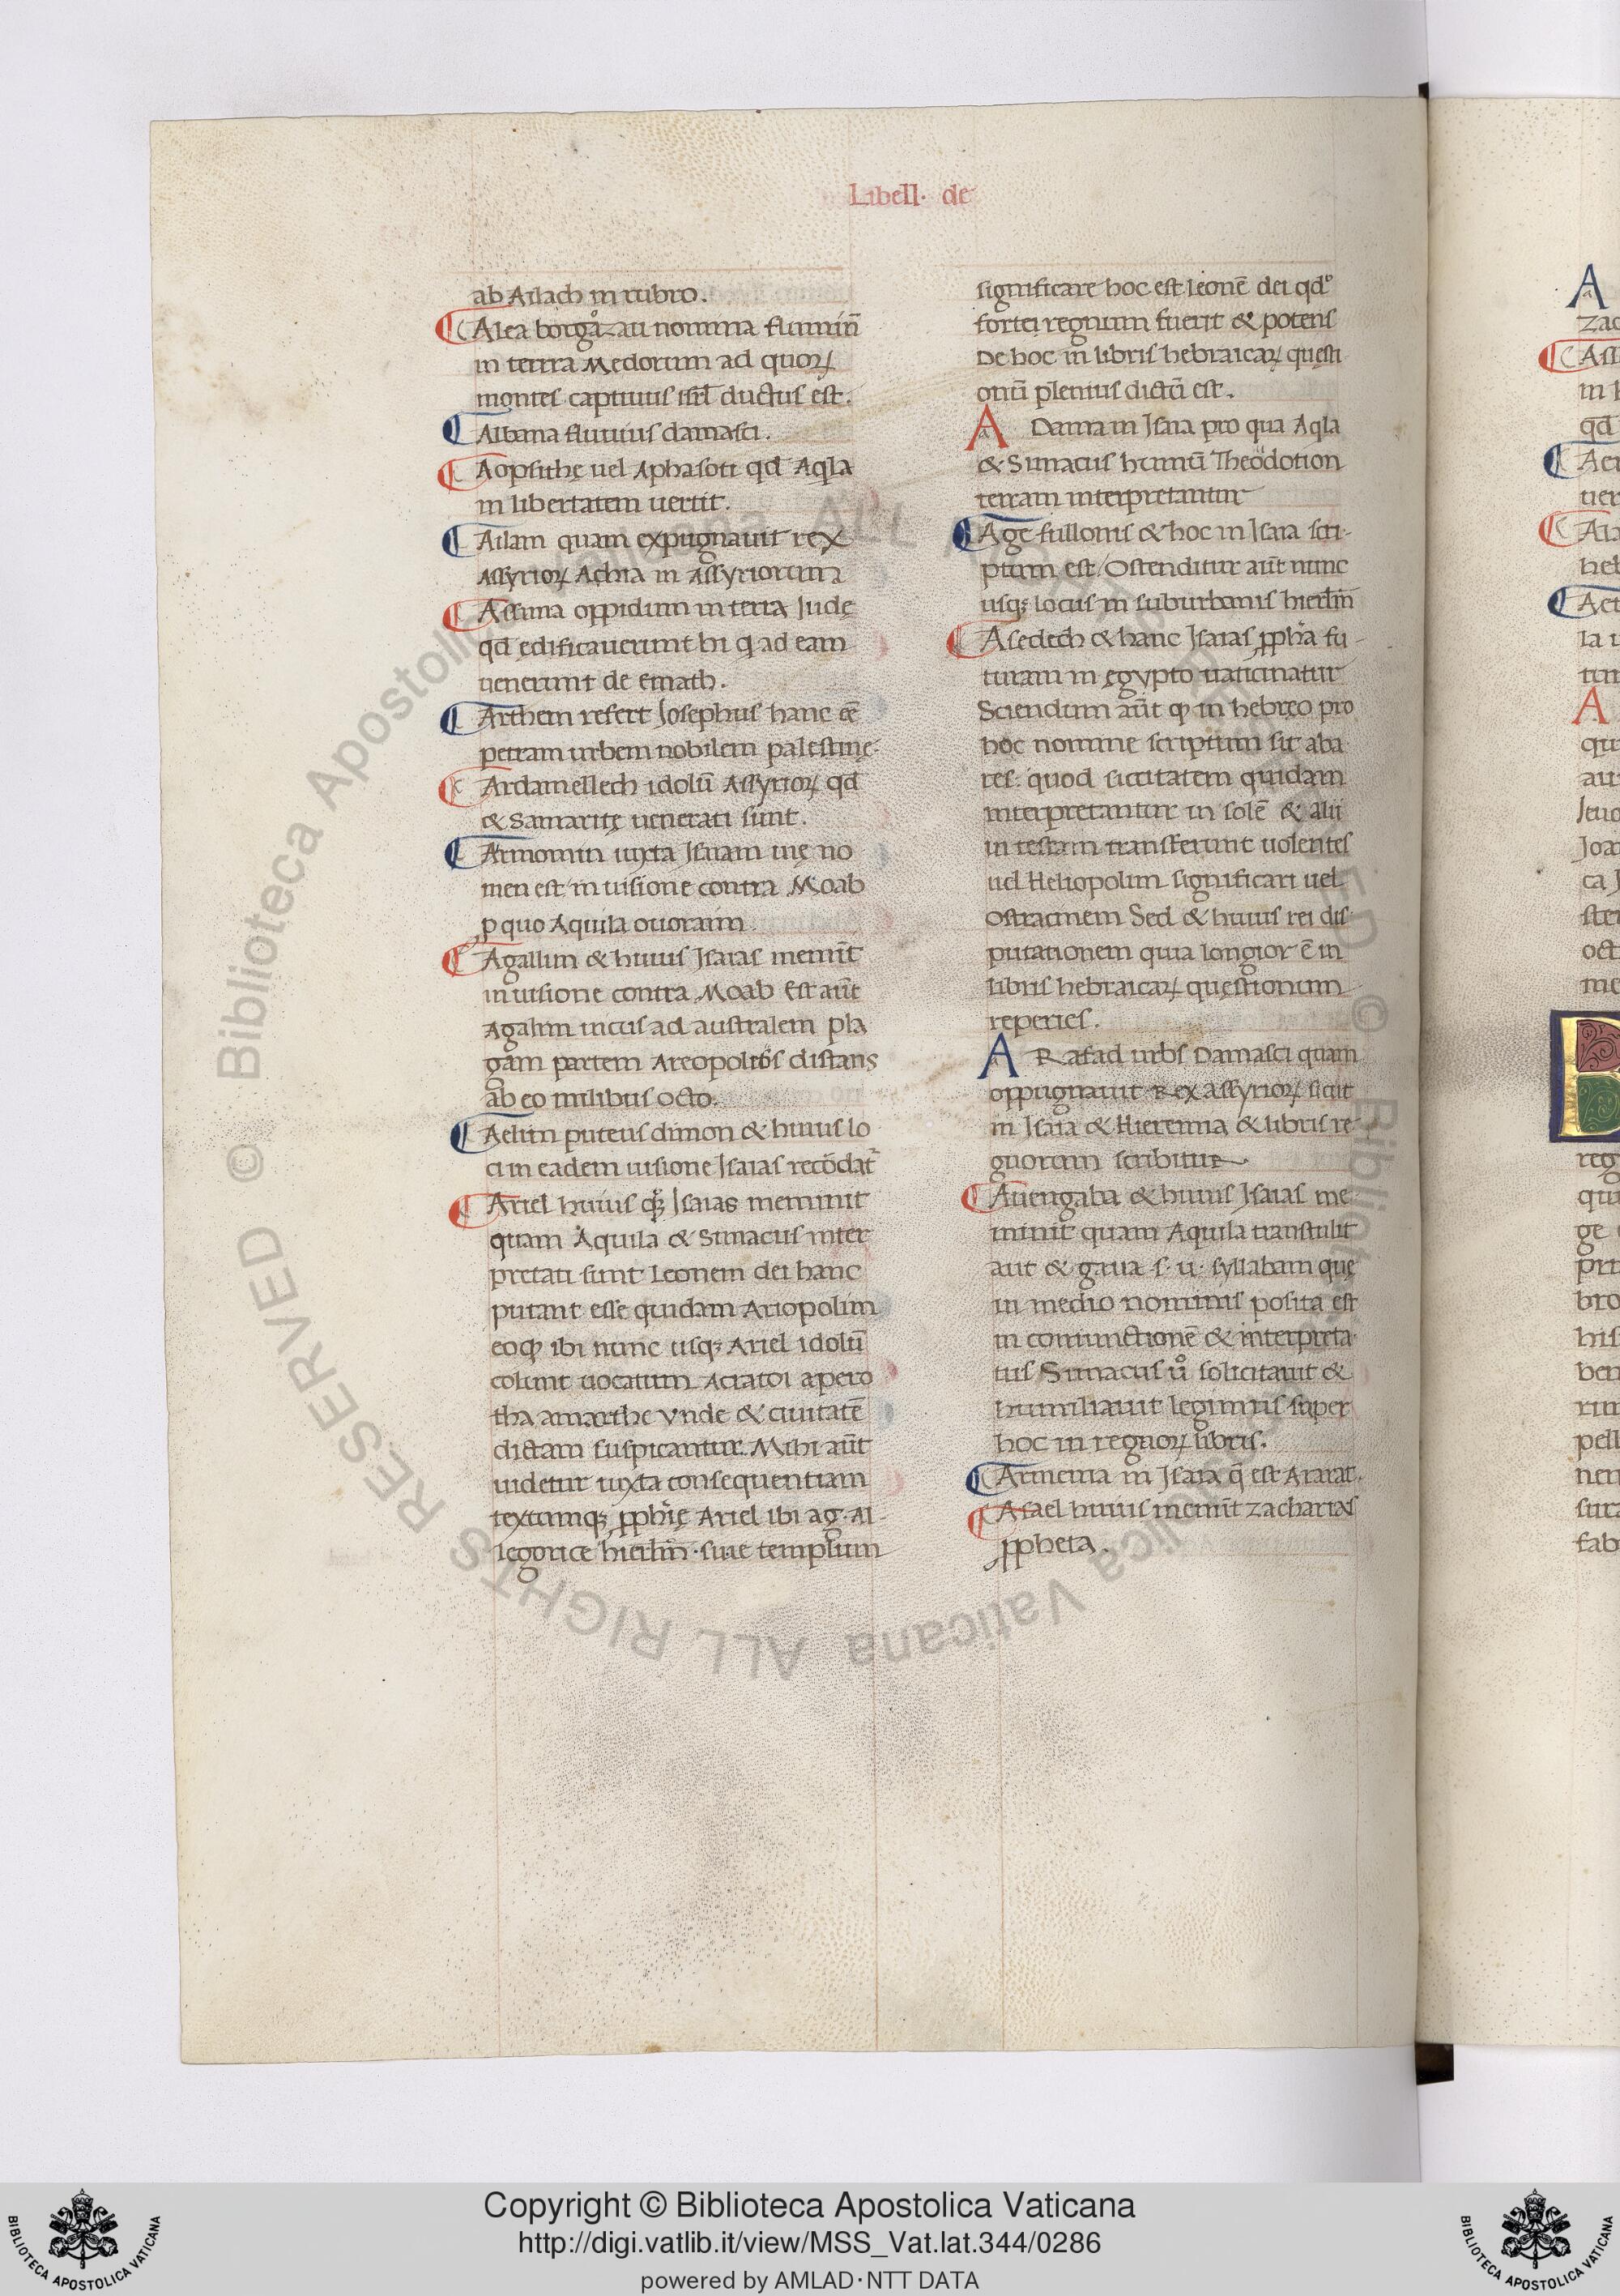 Libell· de
ab Ailach in rubro.
Aleaborgazau nomina fluminū
in terrra Medorum ad quoꝝ
montes captiuus isrl̄ ductus est.
Albana fluuius damasci.
Aopsithę uel Aphasoti qd̄ Aqla
in libertatem uertit.
Ailam quam expugnauit rex
Assyrioꝝ Achia in Assyriorum
Assima oppidum in terra Iudę
qd̄ ędificauerunt hi q ad eam
uenerunt de emath.
Arthem refert Iosephus hanc eē
petram urbem nobilem palestinę·
Ardamellech idolū Assyrioꝝ qd
& Samaritę uenerati sunt.
Armomin iuxta Isaiam uię no
men est in uisione contra Moab
ꝓ quo Aquila ouoraim
Agallim & huius Isaias memīt
in uisione contra Moab Est aūt
Agalim uicus ad australem pla
gam partem Areopoleos distans
ab eo milibus octo.
Aelim puteus dimon & huius lo
ci in eadem uisione Isaias recōdat᷑
Ariel huius qꝫ Isaias meminit
quam Aquila & Simacus inter
pretati sunt Leonem dei hanc
putant esse quidam Ariopolim
eoꝙ ibi nunc usqꝫ Ariel idolū
colunt uocatum Aciatoi apero
tha amarthe Vnde & ciuitatē
dictam suspicantur. Mihi aūt
uidetur iuxta consequentiam
textumqꝫ ꝓphię Ariel ibi ag· Al-
legorice hierl̄m· siue templum
significare hoc est leonē dei qd°
fortei regnum fuerit & potens
De hoc in libris hebraicaꝝ quęsti
onū plenius dictū est.
A Dama in Isaia pro qua Aqla
& Simacus humū Theodotion
terram interpretantur
Age fullonis & hoc in Isaia scri·
ptum est. Ostenditur aūt nunc
usqꝫ locus in suburbanis hierl̄m
Asedech & hanc Isaias ꝓpha fu-
turam in ęgypto uaticinatur
Sciendum aūt ꝙ in hebręo pro
hoc nomine scriptum sit aba
res: quod siccitatem quidam
interpretantur in solē & alii
in testam transferunt uolentes
uel Heliopolim significari uel
ostracinem Sed & huius rei dis
putationem quia longior ē in
libris hebraicaꝝ quęstionum
reperies.
A Rafad urbs Damasci quam
oppugnauit Rex assyrioꝝ sicut
in Isaia & Hieremia & libris re
gnorum scribitur.
Auengaba & huius Isaias me
minit quam Aquila transtulit
aut & gaua s· u· syllabam quę
in medio nominis posita est
in coniunctionē & interpreta
tus Simacus ů solicitauit &
humiliauit legimus super
hoc in regnoꝝ libris.
Armenia in Isaia q̄ est Ararat.
Asael huius memīt zacharias
ꝓpheta.
Copyright © Biblioteca Apostolica Vaticana
http://digi.vatlib.it/view/MSS_Vat.lat.344/0286
powered by AMLAD·NTT DATA
BIBLIOTECA APOSTOLICA VATICANA
BIBLIOTECA APOSTOLICA VATICANA